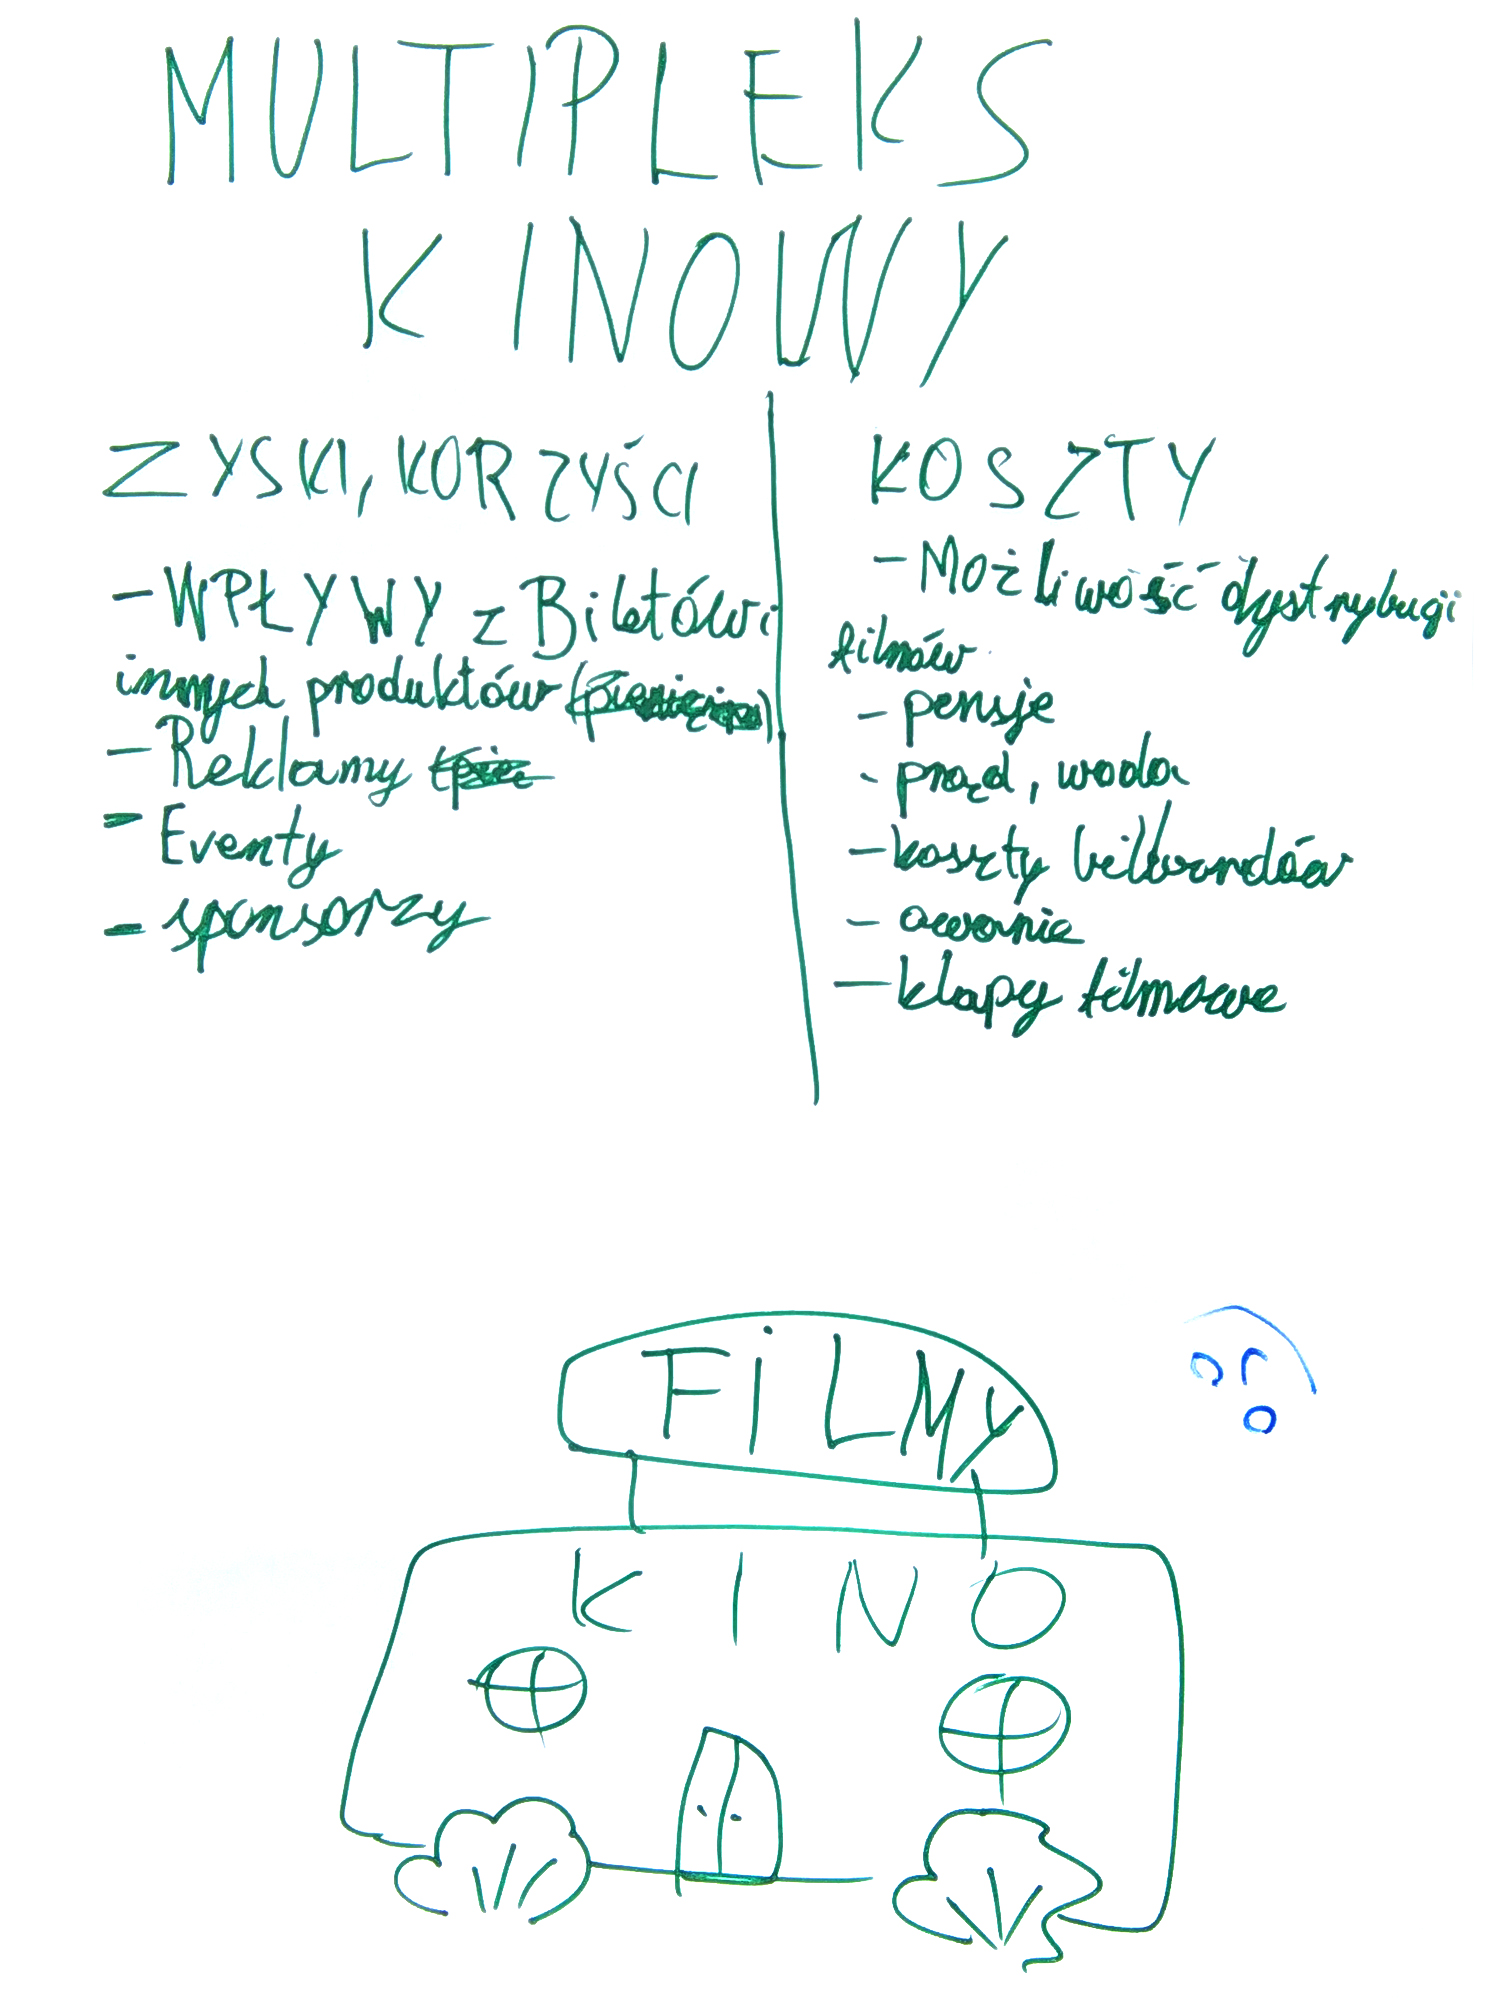 MULTIPLEKS
KINOWY
ZYSKI, KORZYŚCI
- WPŁYWY z Biletów i
innych produktów
- Reklamy
- Eventy
- sponsorzy
KOSZTY
- Możliwość dystrybucji
filmów
- pensje
- prąd, woda
- koszty bilbordów
- awarie
- klapy filmowe
FiLMY
KINO